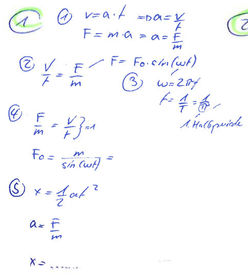 1
① v = a · t ⇒ a = v/t
F = m · a ⇒ a = F/m
② v/t = F/m / F = F₀ · sin(ωt)
③ ω = 2πf
f = 1/T =
1. Halbperiode
④ F/m = v/t } = 1
F₀ = m/sin(ωt) =
⑤ x = 1/2 at²
a = F/m
x = ......
2